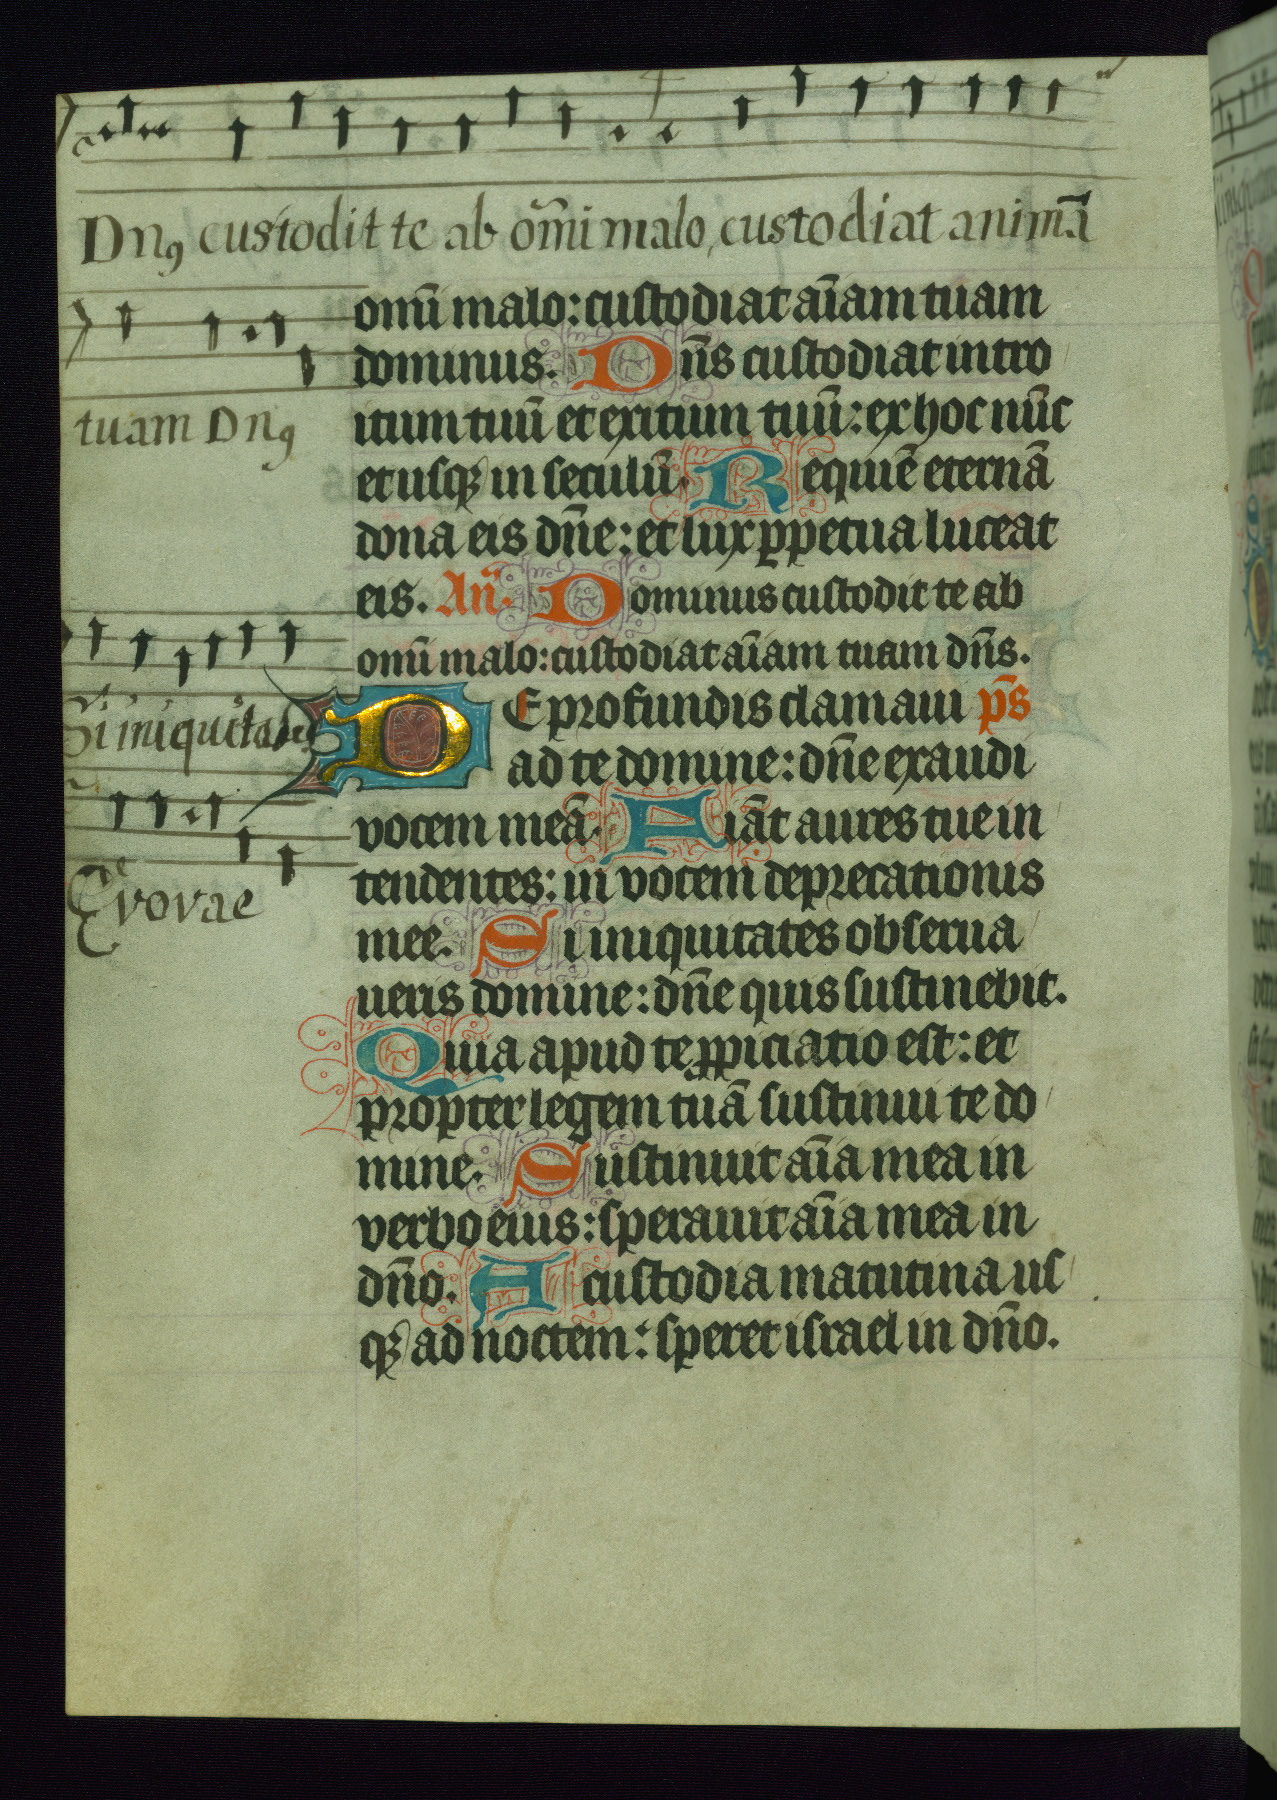 Dnꝯ custodit te ab om̃i malo, custodiat animā
tuam Dnꝯ
Si iniquitates
Evovae
omī malo: custodiat aīam tuam
dominus. Dn̄s custodiat intro
itum tuū et exitum tuū: ex hoc nūc
et usqꝫ in seculū. Requiē eternā
dona eis dn̄e: et lux ꝑpetua luceat
eis. An̄. Dominus custodit te ab
omī malo: custodiat aīam tuam dn̄s.
DE profundis clamaui p̄s
ad te domine: dn̄e exaudi
vocem meā. Fiāt aures tue in
tendentes: in vocem deprecationis
mee. Si iniquitates obserua
ueris domine: dn̄e quis sustinebit.
Quia apud te ꝓpiciatio est: et
propter legem tuā sustinui te do
mine. Sustinuit aīa mea in
verbo eius: sperauit aīa mea in
dn̄o. A custodia matutina us
qꝫ ad noctem: speret israel in dn̄o.